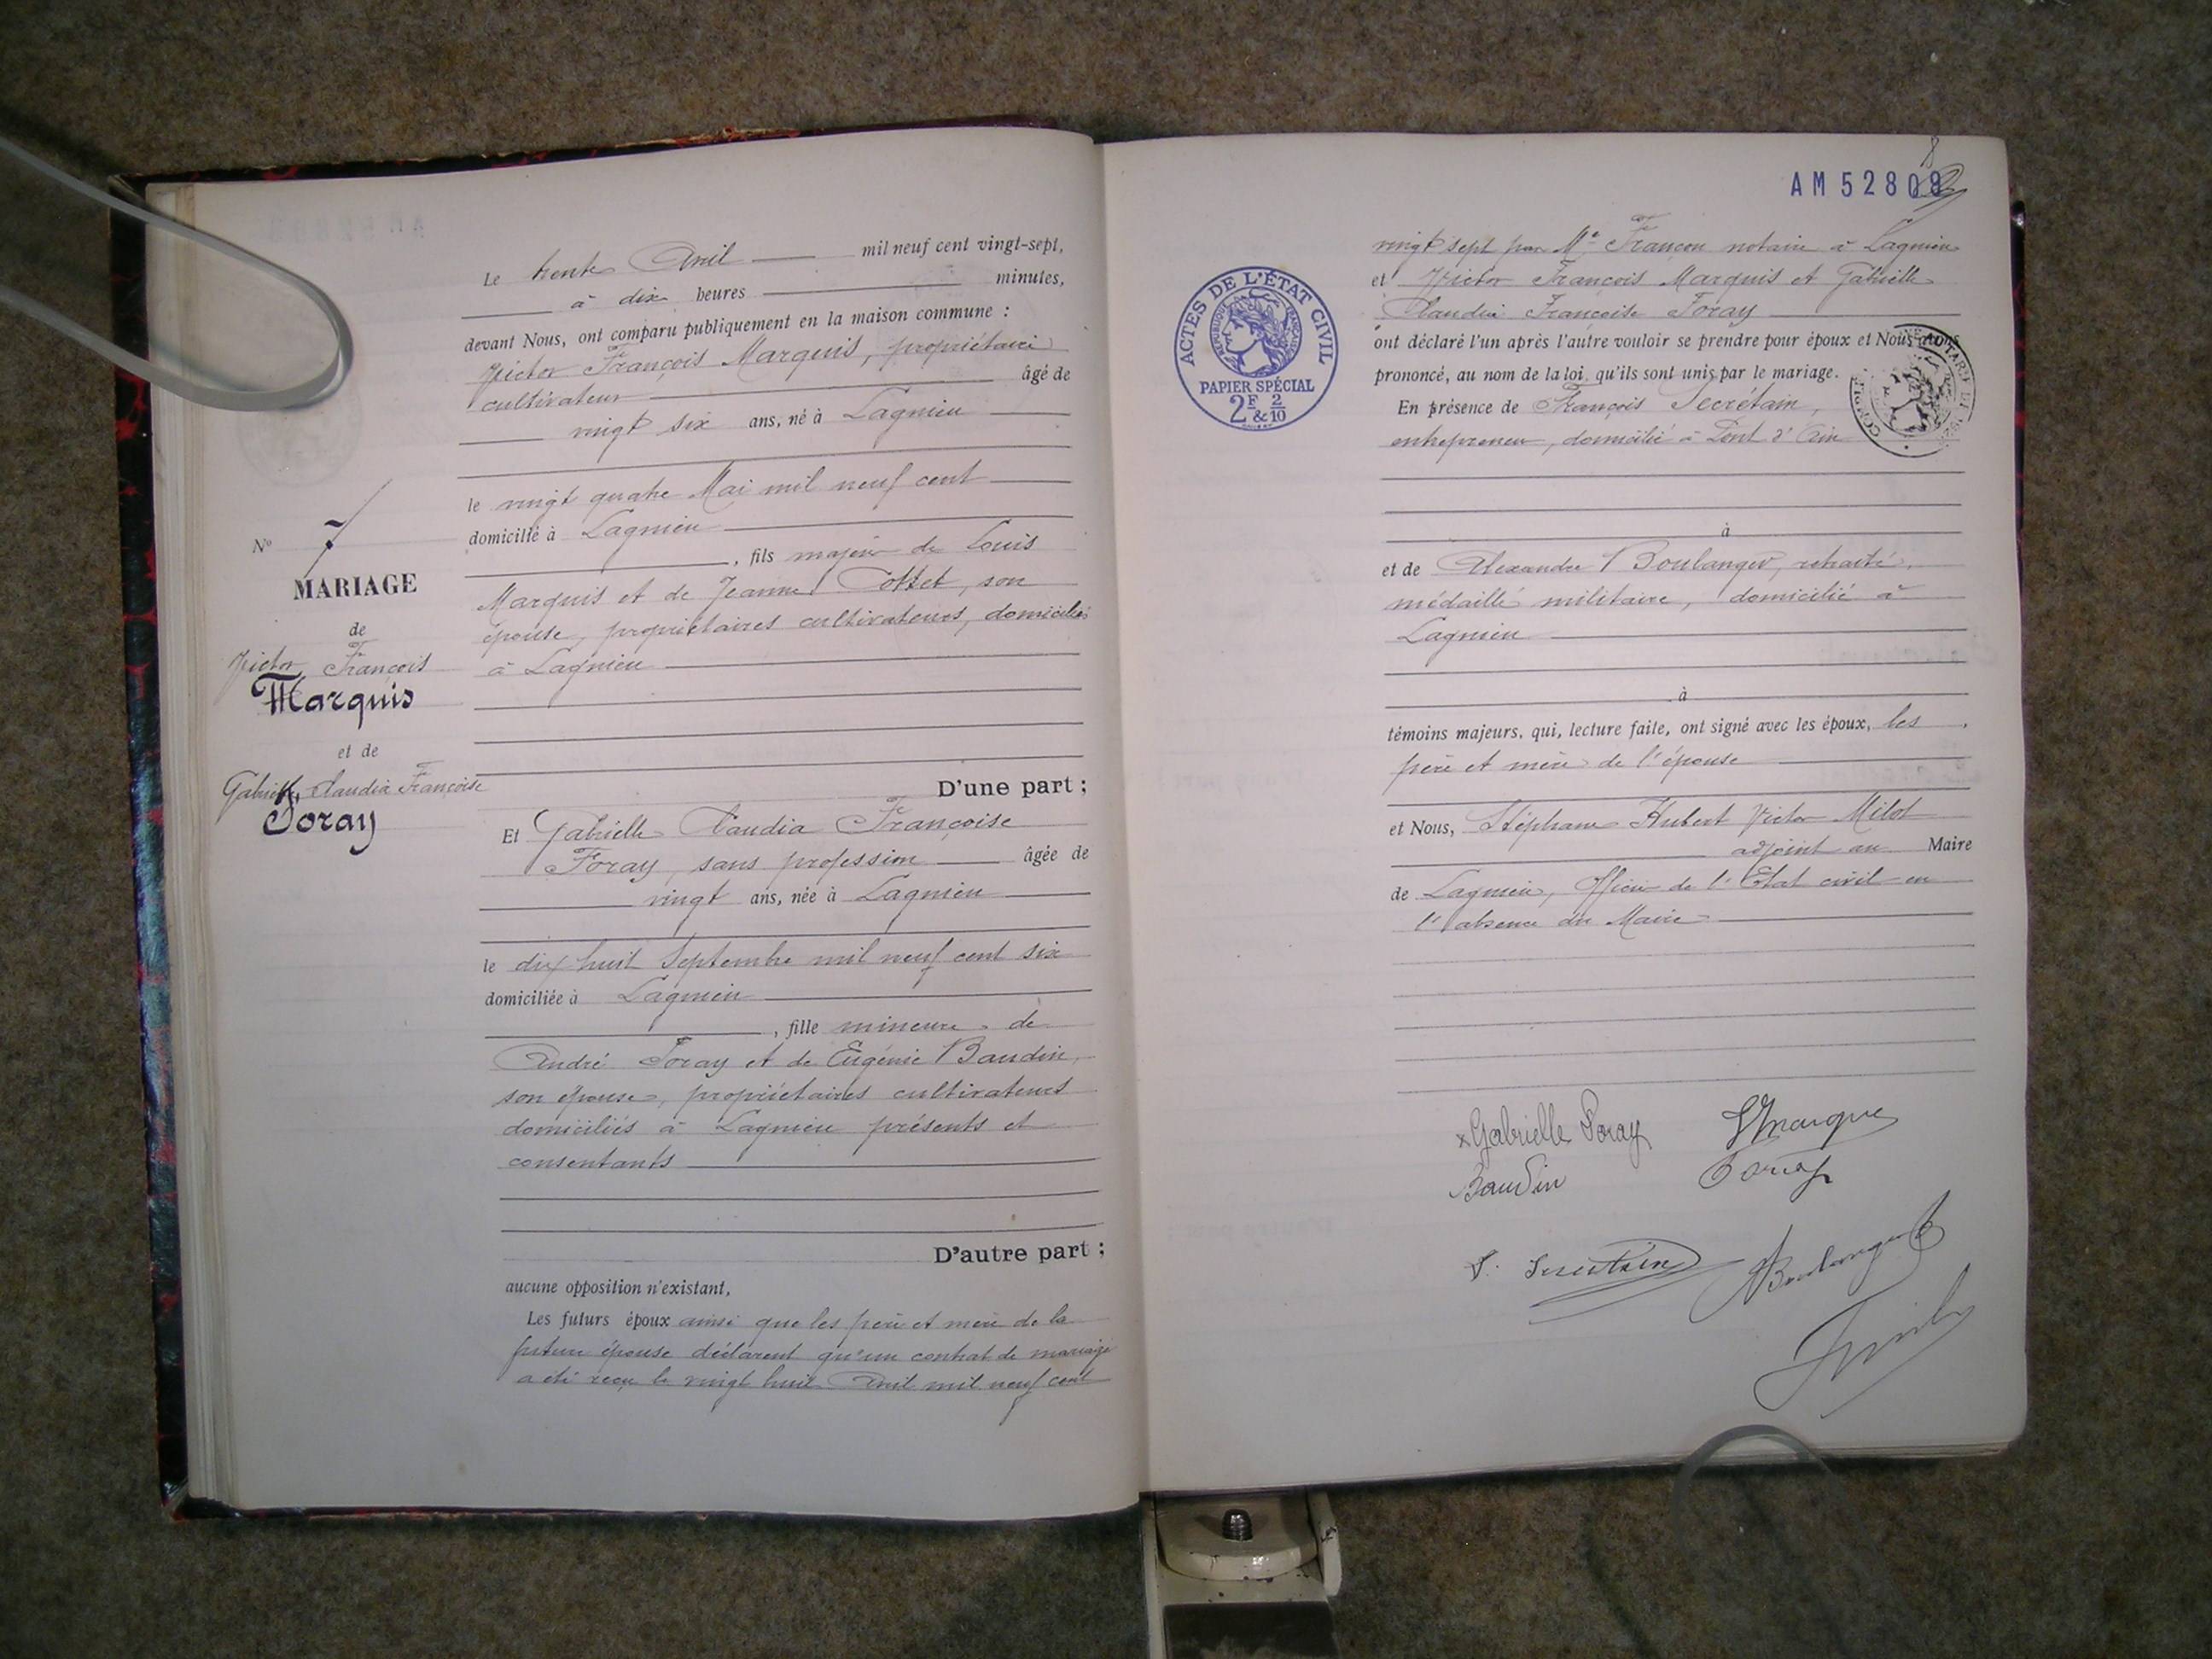 Le trente Avril mil neuf cent vingt-sept,
à dix heures minutes,
devant Nous, ont comparu publiquement en la maison commune :
Victor François Marquis, propriétaire
cultivateur âgé de
vingt six ans, né à Lagnieu
le vingt quatre Mai mil neuf cent
domicilié à Lagnieu
, fils majeur de Louis
Marquis et de Jeanne Cottet, son
épouse, propriétaires cultivateurs, domiciliés
à Lagnieu
D'une part ;
Et Gabrielle Claudia Françoise
Foray, sans profession âgée de
vingt ans, née à Lagnieu
le dix huit Septembre mil neuf cent six
domiciliée à Lagnieu
, fille mineure de
André Foray et de Eugénie Baudin,
son épouse, propriétaires cultivateurs
domiciliés à Lagnieu présents et
consentants
D'autre part ;
aucune opposition n'existant,
Les futurs époux ainsi que les père et mère de la
future épouse déclarent qu'un contrat de mariage
a été reçu le vingt huit Avril mil neuf cent
N° 7
MARIAGE
de
Victor, François
Marquis
et de
Gabrielle, Claudia Françoise
Foray
8
AM 52809
vingt sept par Me Françon notaire à Lagnieu
et Victor François Marquis et Gabrielle
Claudia Françoise Foray
ont déclaré l'un après l'autre vouloir se prendre pour époux et Nous avons
prononcé, au nom de la loi, qu'ils sont unis par le mariage.
En présence de François Secrétain,
entrepreneur, domicilié à Pont d'Ain
à
et de Alexandre Boulanger, retraité,
médaillé militaire, domicilié à
Lagnieu
à
témoins majeurs, qui, lecture faite, ont signé avec les époux, les
père et mère de l'épouse
et Nous, Stéphane Hubert Victor Milot
adjoint au Maire
de Lagnieu, Officier de l'Etat civil en
l'absence du Maire
ACTES DE L'ÉTAT CIVIL
RÉPUBLIQUE FRANÇAISE
PAPIER SPÉCIAL
2F & 2/10
x Gabrielle Foray
Baudin Foray
Boulanger